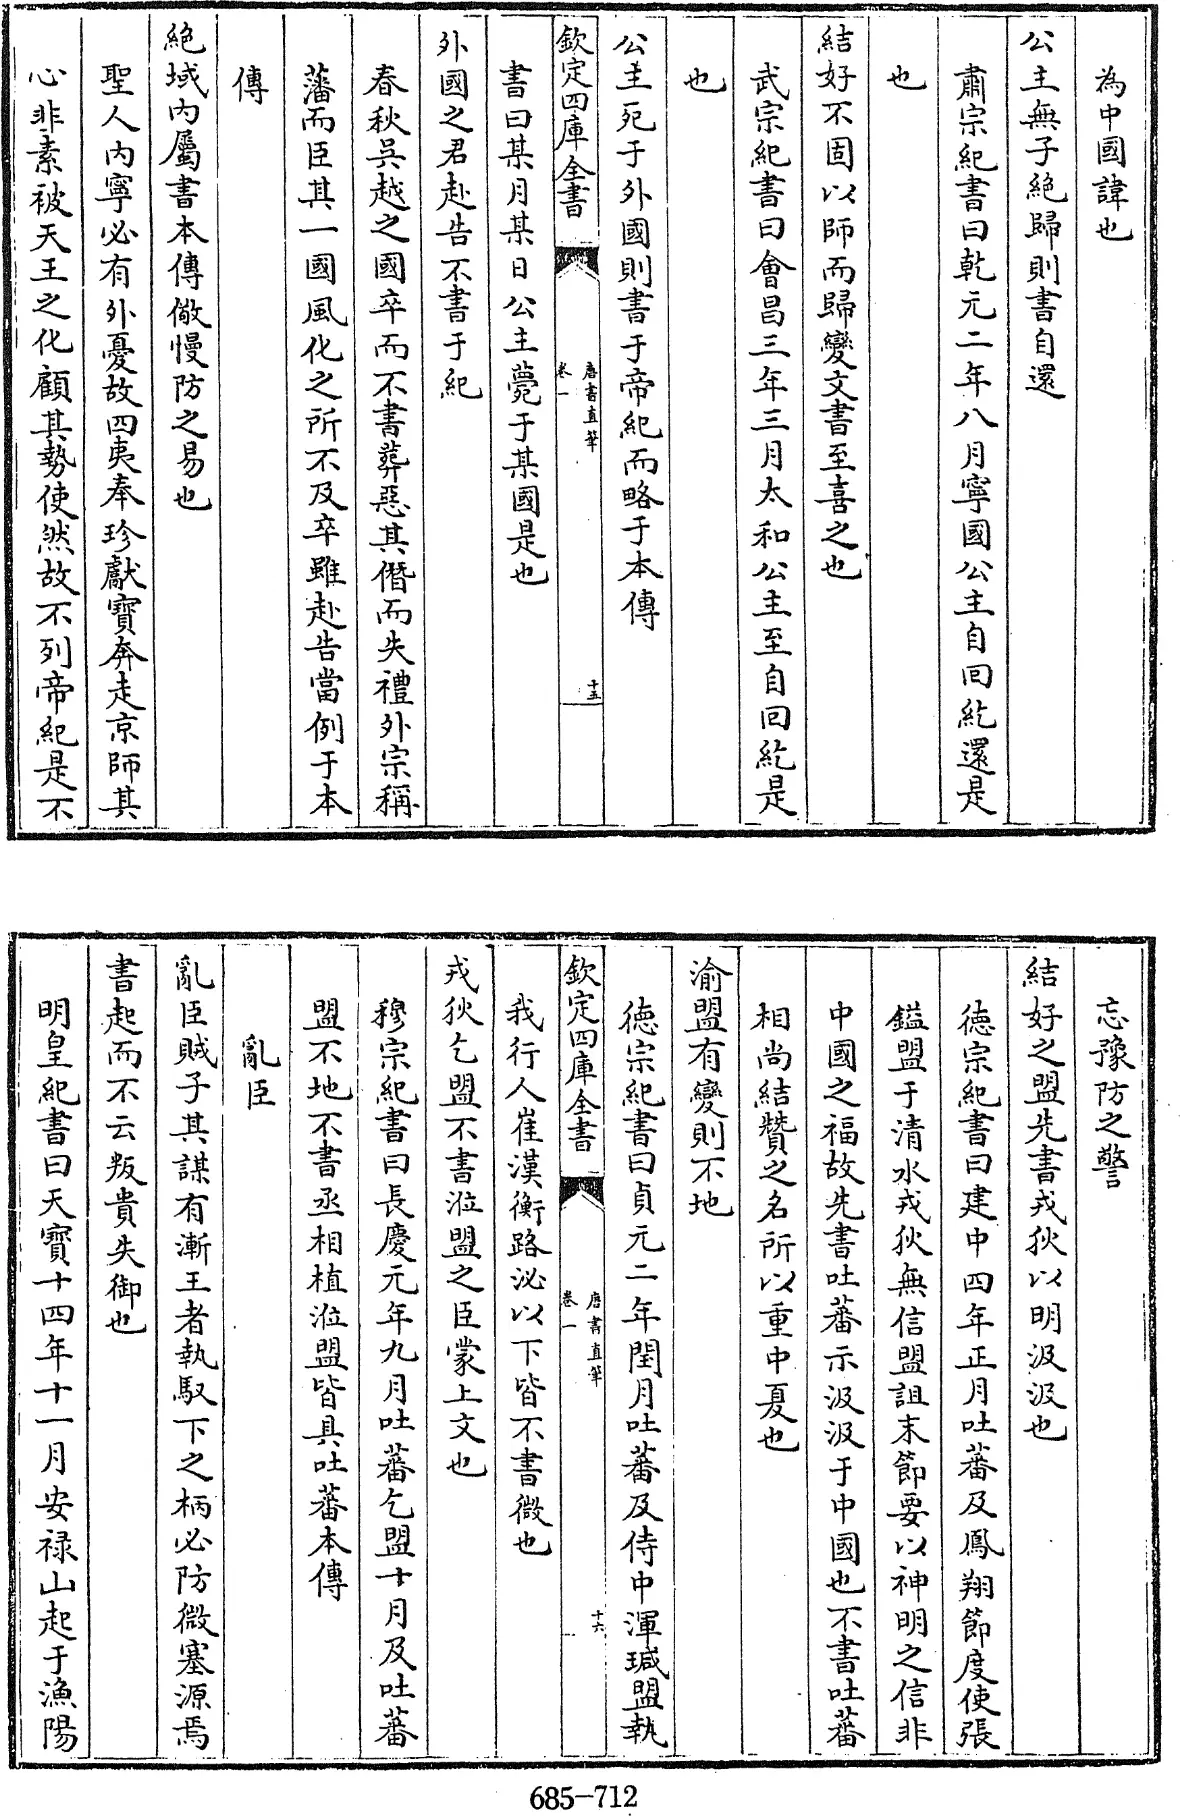 為中國諱也
公主無子絶歸則書自還
肅宗紀書曰乾元二年八月寧國公主自回紇還是
也
結好不固以師而歸變文書至喜之也
武宗紀書曰會昌三年三月太和公主至自回紇是
也
公主死于外國則書于帝紀而略于本傳
欽定四庫全書
唐書直筆
卷一
十五
書曰某月某日公主薨于某國是也
外國之君赴告不書于紀
春秋吳越之國卒而不書葬惡其僭而失禮外宗稱
藩而臣其一國風化之所不及卒雖赴告當例于本
傳
絶域内屬書本傳儆慢防之易也
聖人内寧必有外憂故四夷奉珍獻寶奔走京師其
心非素被天王之化顧其勢使然故不列帝紀是不
忘豫防之警
結好之盟先書戎狄以明汲汲也
德宗紀書曰建中四年正月吐蕃及鳳翔節度使張
鎰盟于清水戎狄無信盟詛末節要以神明之信非
中國之福故先書吐蕃示汲汲于中國也不書吐蕃
相尚結贊之名所以重中夏也
渝盟有變則不地
德宗紀書曰貞元二年閏月吐蕃及侍中渾瑊盟執
欽定四庫全書
唐書直筆
卷一
十六
我行人崔漢衡路泌以下皆不書微也
戎狄乞盟不書涖盟之臣蒙上文也
穆宗紀書曰長慶元年九月吐蕃乞盟十月及吐蕃
盟不地不書丞相植涖盟皆具吐蕃本傳
亂臣
亂臣賊子其謀有漸王者執馭下之柄必防微塞源焉
書起而不云叛貴失御也
明皇紀書曰天寶十四年十一月安禄山起于漁陽
685-712